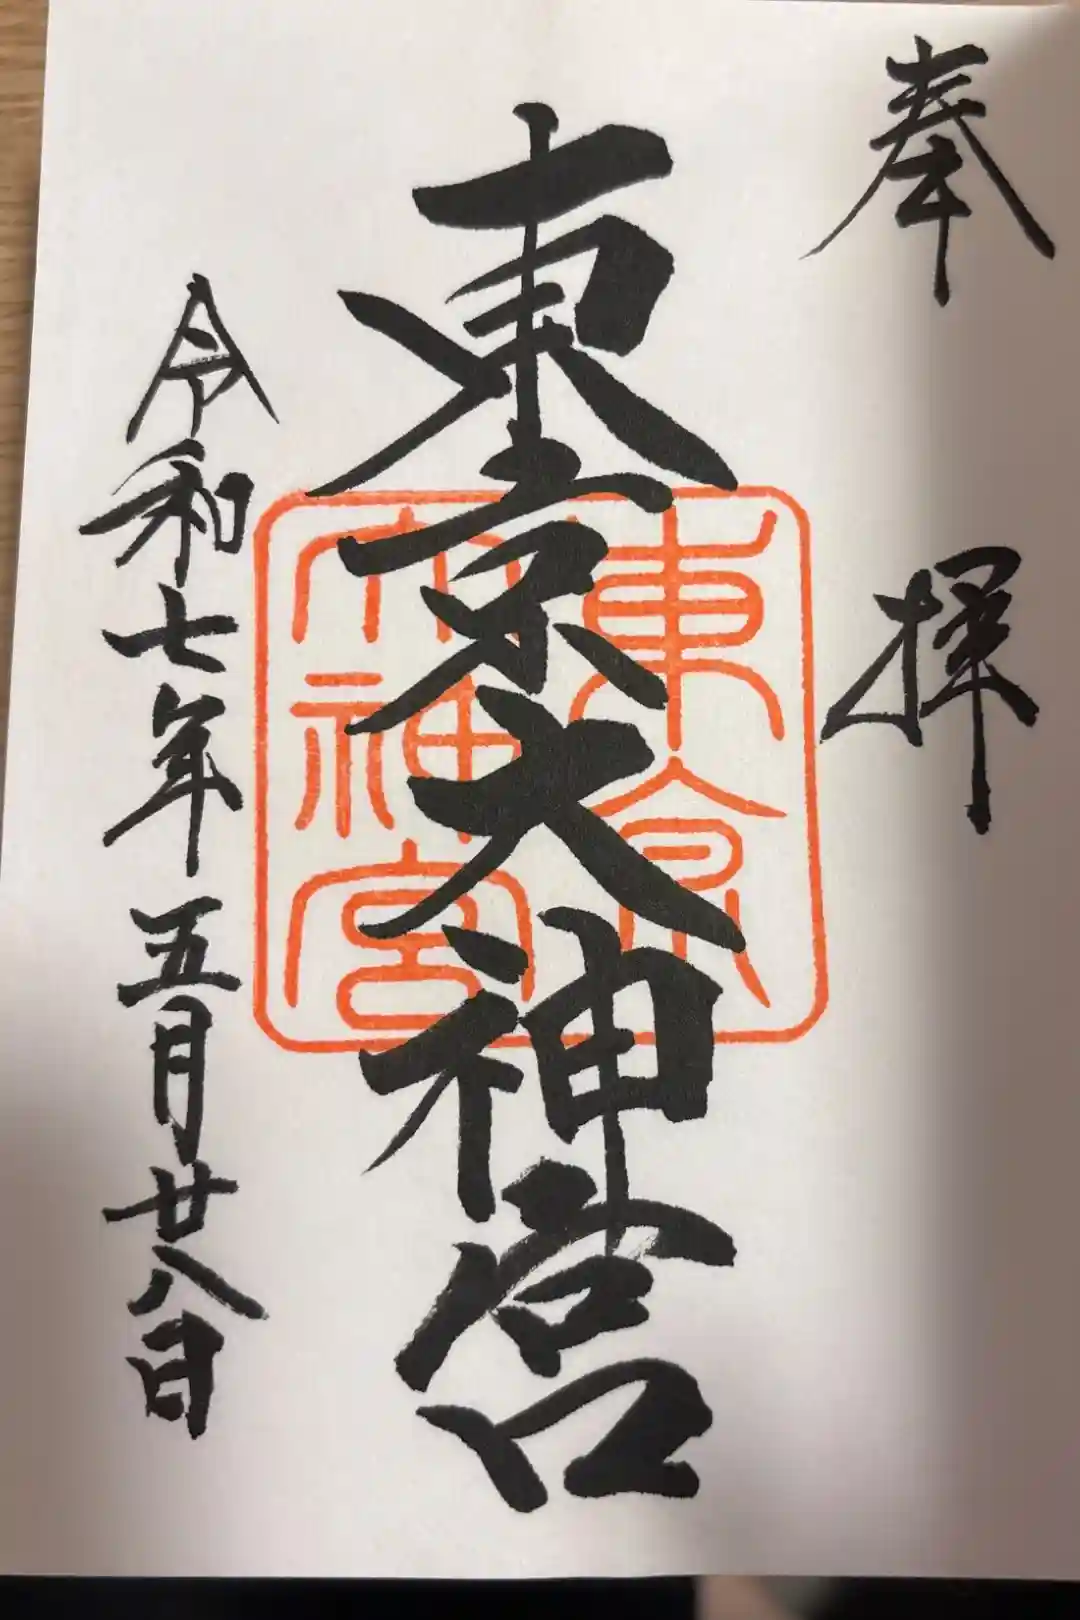 奉拝
東京大神宮
東京
大神宮
令和七年五月廿八日